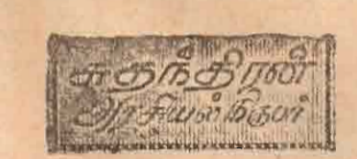 சுதந்திரன்
அரசியல் நிருபர்